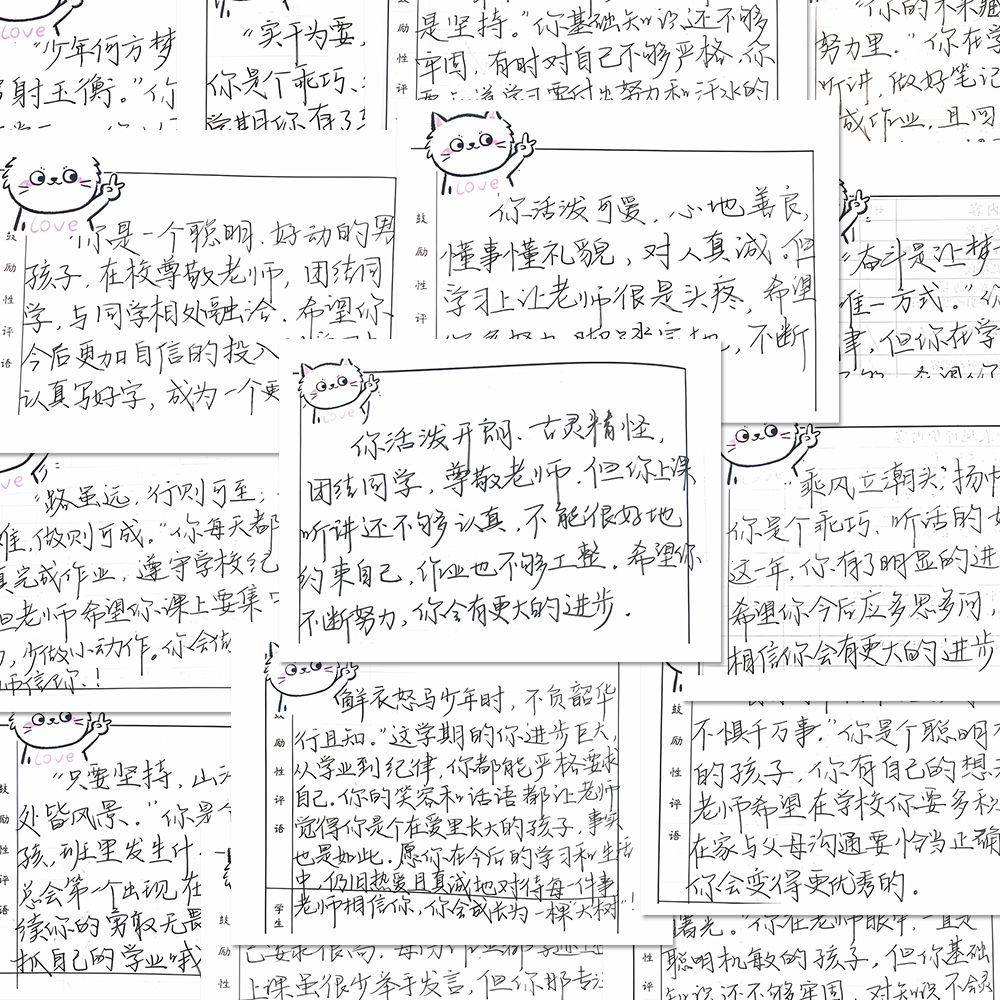 Love
"少年何方梦
射玉衡。"你
"实干为要,
你是个乖巧、
学期你有了
是坚持。"你基础知识还不够
牢固,有时对自己不够严格,你
评
"你的未来
努力里。"你在学
听讲,做好笔记
成作业,且回
Love
鼓励性评语
你是一个聪明、好动的男
孩子,在校尊敬老师,团结同
学,与同学相处融洽。希望你
今后更加自信的投入
认真写好字,成为一个更
Love
鼓励性评
你活泼可爱,心地善良,
懂事懂礼貌,对人真诚。但
学习上让老师很是头疼,希望
不断
"奋斗是让梦
唯一方式。"
事,但你在学
Love
你活泼开朗、古灵精怪,
团结同学,尊敬老师,但你上课
听讲还不够认真,不能很好地
约束自己,作业也不够工整。希望你
不断努力,你会有更大的进步。
"路虽远,行则可至,
难,做则可成。"你每天都
真完成作业,遵守学校纪
但老师希望你课上要集
少做小动作。你会
师信你!
"乘风立潮头,扬
你是个乖巧、听话的
这一年,你有了明显的进
希望你今后应多思多问,
相信你会有更大的进步
鼓励性评语
鲜衣怒马少年时,不负韶华
行且知。"这学期的你进步巨大,
从学业到纪律,你都能严格要求
自己。你的笑容和话语都让老师
觉得你是个在爱里长大的孩子,事实
也是如此。愿你在今后的学习和生活
中,仍旧热爱且真诚地对待每一件事
老师相信你,你会成长为一棵"大树"!
学生
鼓励性评语
不惧千万事。"你是个聪明
的孩子,你有自己的想
老师希望在学校你要多
在家与父母沟通要恰当正确
你会变得更优秀的。
Love
鼓励性评语
"只要坚持,山
处皆风景。"你是个
孩,班里发生什
总会第一个出现,在
续你的勇敢无畏
抓自己的学业哦
鼓励性
上课虽很少举手发言,但你那专
性评
曙光。"你在老师眼中一直是
聪明机敏的孩子,但你基础
知识还不够牢固,对知识不会